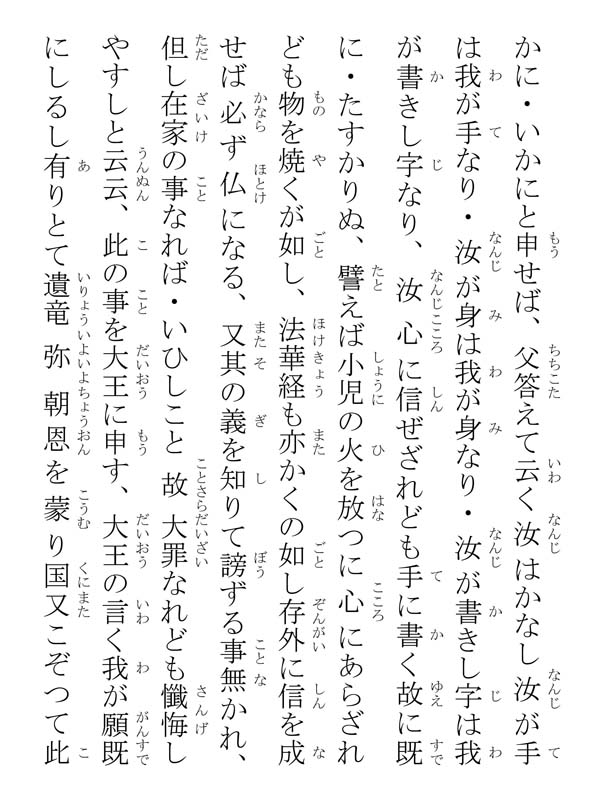 かに・いかにと申せば、父答えて云く汝はかなし汝が手
は我が手なり・汝が身は我が身なり・汝が書きし字は我
が書きし字なり、汝心に信ぜざれども手に書く故に既
に・たすかりぬ、譬えば小児の火を放つに心にあらざれ
ども物を焼くが如し、法華経も亦かくの如し存外に信を成
せば必ず仏になる、又其の義を知りて謗ずる事無かれ、
但し在家の事なれば・いひしこと故大罪なれども懺悔し
やすしと云云、此の事を大王に申す、大王の言く我が願既
にしるし有りとて遺竜弥朝恩を蒙り国又こぞつて此